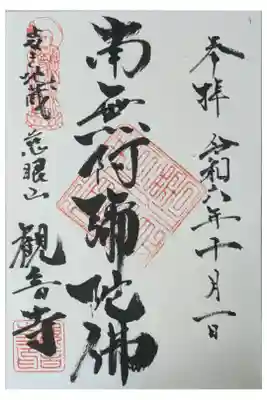 参拝 令和六年十月一日
南無阿弥陀佛
慈眼山 観音寺